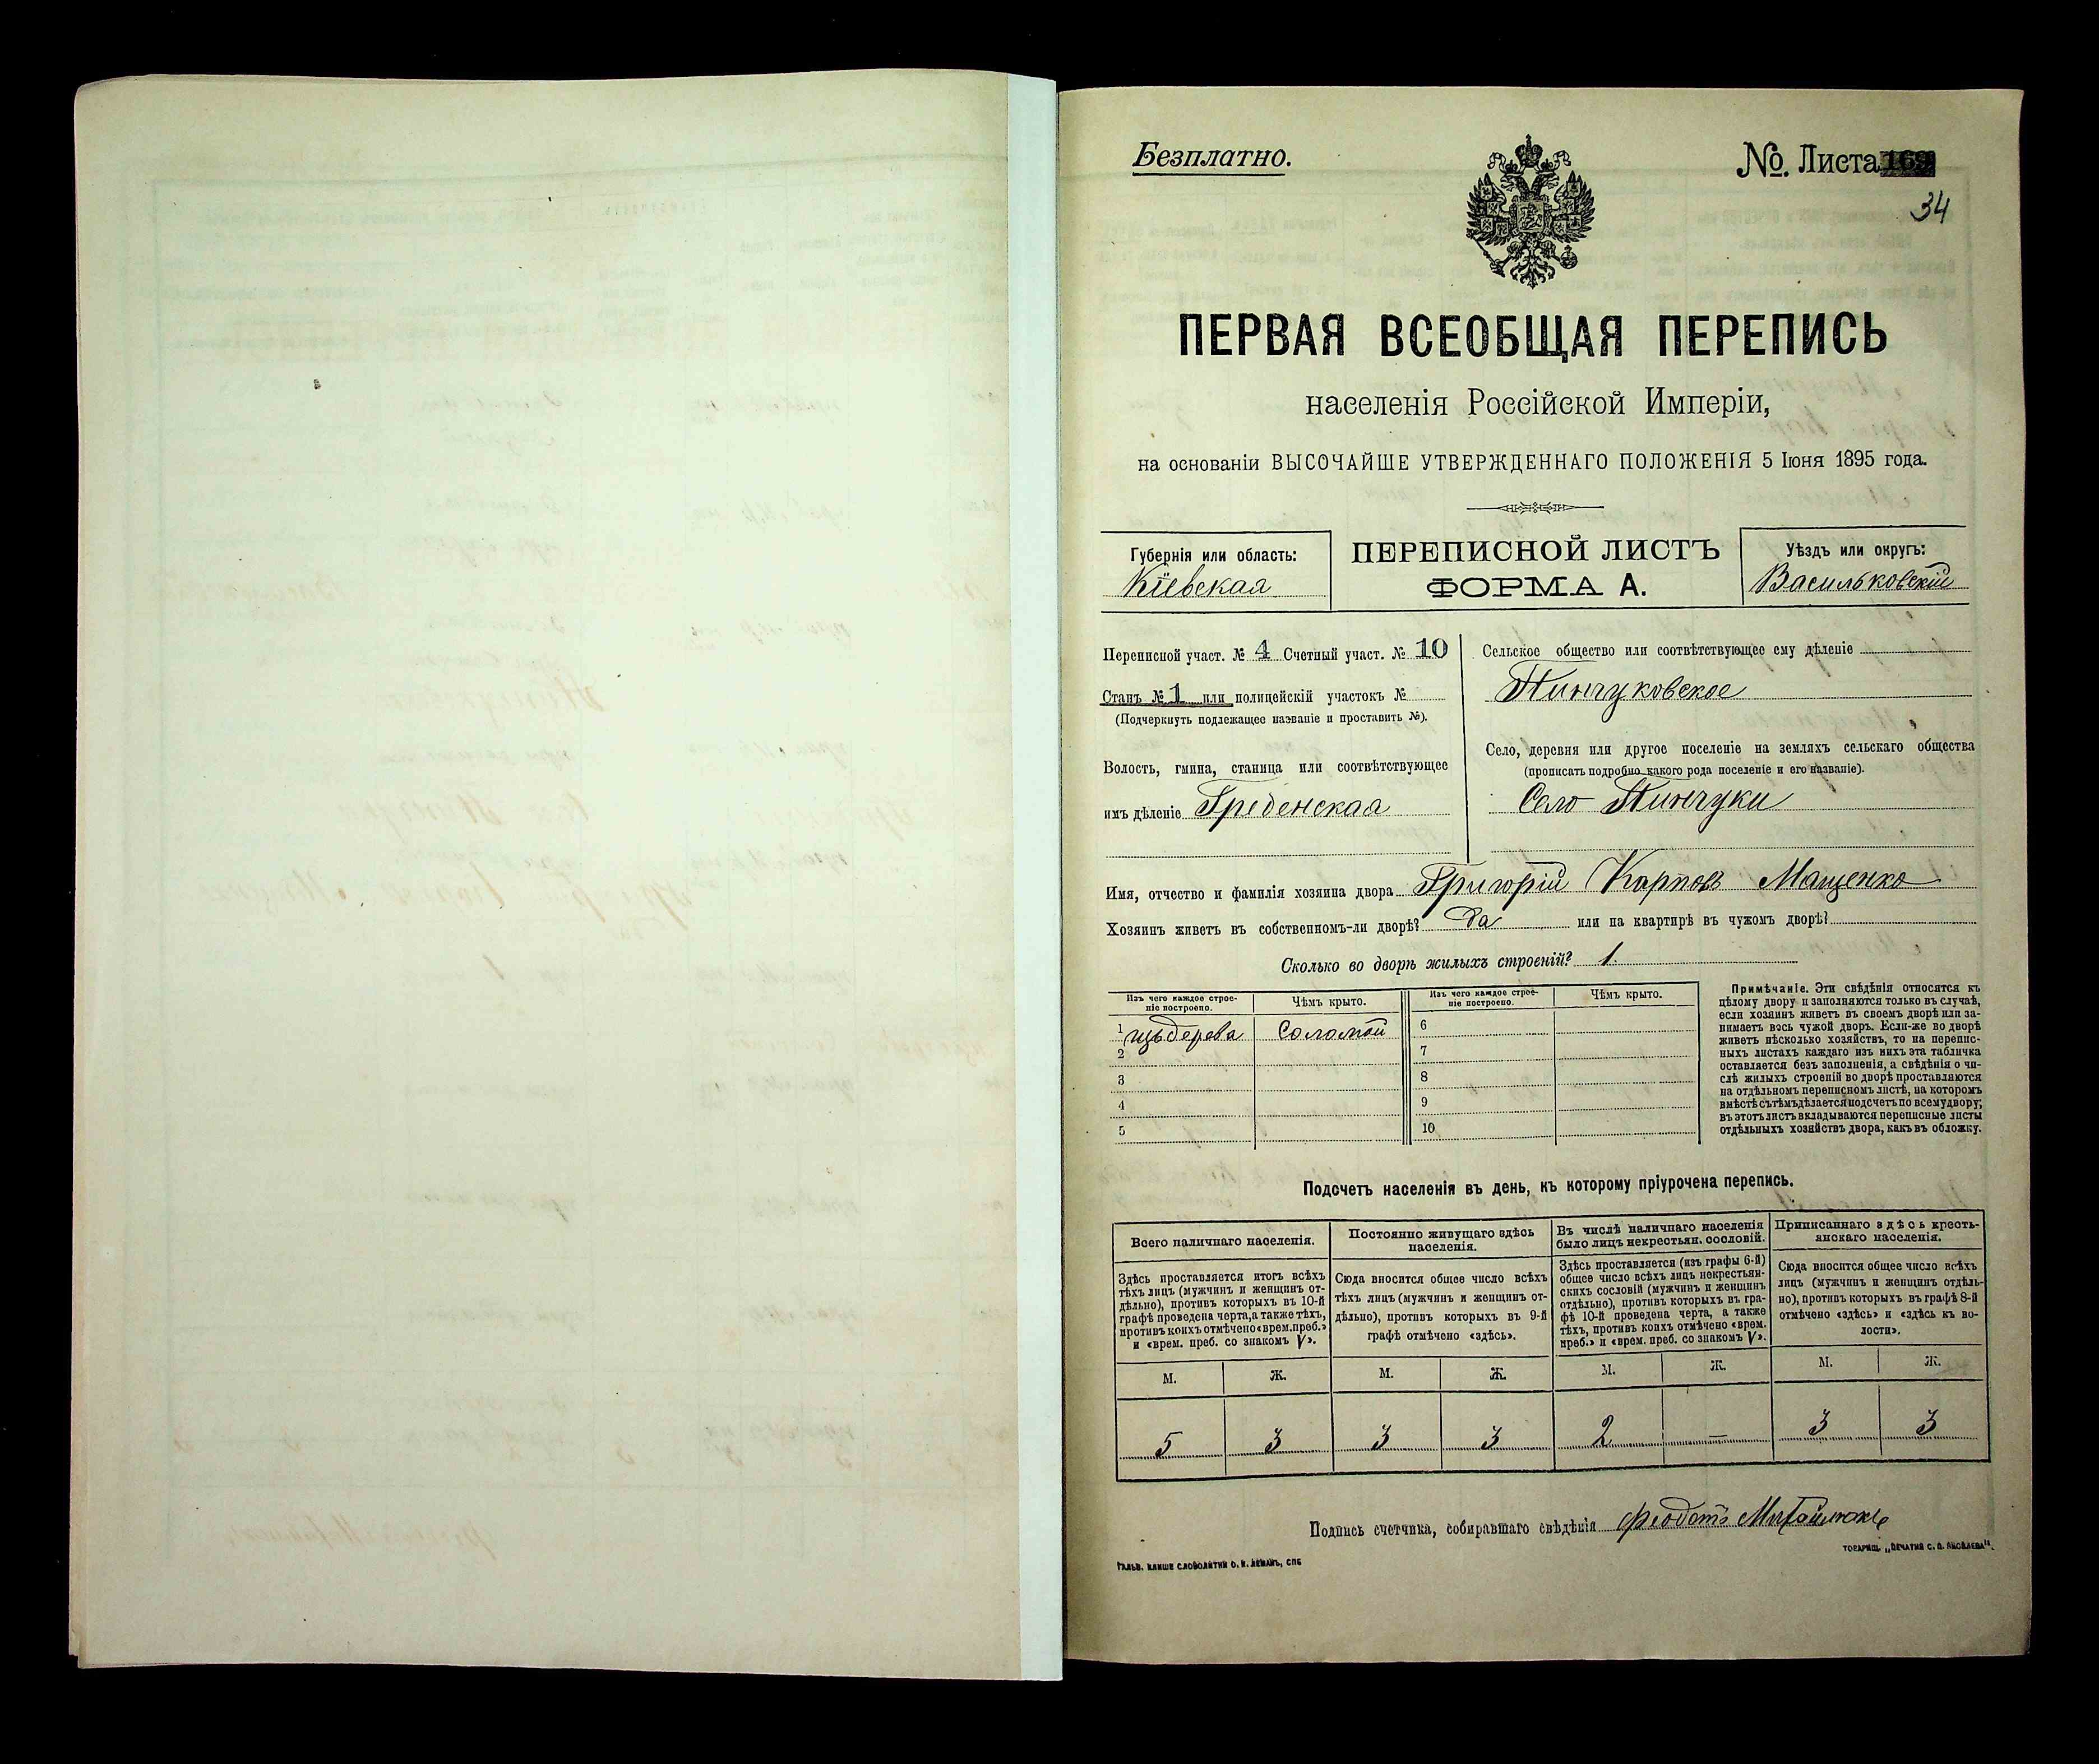 Безплатно.
№ Листа
34
ПЕРВАЯ ВСЕОБЩАЯ ПЕРЕПИСЬ
населенія Россійской Имперіи,
на основаніи ВЫСОЧАЙШЕ УТВЕРЖДЕННАГО ПОЛОЖЕНІЯ 5 Іюня 1895 года.
Губернія или область:
Кіевская
ПЕРЕПИСНОЙ ЛИСТЪ
ФОРМА А.
Уѣздъ или округъ:
Васильковскій
Переписной участ. № 4 Счетный участ. № 10
Станъ № 1 или полицейскій участокъ №
(Подчеркнуть подлежащее названіе и проставить №).
Волость, гмина, станица или соотвѣтствующее
имъ дѣленіе Гребенская
Сельское общество или соотвѣтствующее ему дѣленіе
Пинчуковское
Село, деревня или другое поселеніе на земляхъ сельскаго общества
(прописать подробно какого рода поселеніе и его названіе).
Село Пинчуки
Имя, отчество и фамилія хозяина двора Григорій Карповъ Мащенко
Хозяинъ живетъ въ собственномъ-ли дворѣ? Да или на квартирѣ въ чужомъ дворѣ?
Сколько во дворѣ жилыхъ строеній? 1.
Изъ чего каждое строе-
ніе построено.
Чѣмъ крыто.
Изъ чего каждое строе-
ніе построено.
Чѣмъ крыто.
1 изъ дерева Соломой 6
2 7
3 8
4 9
5 10
Примѣчаніе. Эти свѣдѣнія относятся къ
цѣлому двору и заполняются только въ случаѣ,
если хозяинъ живетъ въ своемъ дворѣ или за-
нимаетъ весь чужой дворъ. Если-же во дворѣ
живетъ нѣсколько хозяйствъ, то на перепис-
ныхъ листахъ каждаго изъ нихъ эта табличка
оставляется безъ заполненія, а свѣдѣнія о чи-
слѣ жилыхъ строеній во дворѣ проставляются
на отдѣльномъ переписномъ листѣ, на которомъ
вмѣстѣ съ тѣмъ дѣлается подсчетъ по всему двору;
въ этотъ листъ вкладываются переписные листы
отдѣльныхъ хозяйствъ двора, какъ въ обложку.
Подсчетъ населенія въ день, къ которому пріурочена перепись.
Всего наличнаго населенія.
Постоянно живущаго здѣсь
населенія.
Въ числѣ наличнаго населенія
было лицъ некрестьян. сословій.
Приписаннаго здѣсь кресть-
янскаго населенія.
Здѣсь проставляется итогъ всѣхъ
тѣхъ лицъ (мужчинъ и женщинъ от-
дѣльно), противъ которыхъ въ 10-й
графѣ проведена черта, а также тѣхъ,
противъ коихъ отмѣчено «врем. преб.»
и «врем. преб. со знакомъ V».
Сюда вносится общее число всѣхъ
тѣхъ лицъ (мужчинъ и женщинъ от-
дѣльно), противъ которыхъ въ 9-й
графѣ отмѣчено «здѣсь».
Здѣсь проставляется (изъ графы 6-й)
общее число всѣхъ лицъ некрестьян-
скихъ сословій (мужчинъ и женщинъ
отдѣльно), противъ которыхъ въ гра-
фѣ 10-й проведена черта, а также
тѣхъ, противъ коихъ отмѣчено «врем.
преб.» и «врем. преб. со знакомъ V».
Сюда вносится общее число всѣхъ
лицъ (мужчинъ и женщинъ отдѣль-
но), противъ которыхъ въ графѣ 8-й
отмѣчено «здѣсь» и «здѣсь къ во-
лости».
М. Ж. М. Ж. М. Ж. М. Ж.
5 3 3 3 2 — 3 3
Подпись счетчика, собиравшаго свѣдѣнія Феодотъ
ГАЛЬВ. КЛИШЕ СЛОВОЛИТНИ О. И. ЛЕМАНЪ, СПБ
ТОВАРИЩ. „ПЕЧАТНЯ С. П. ЯКОВЛЕВА".